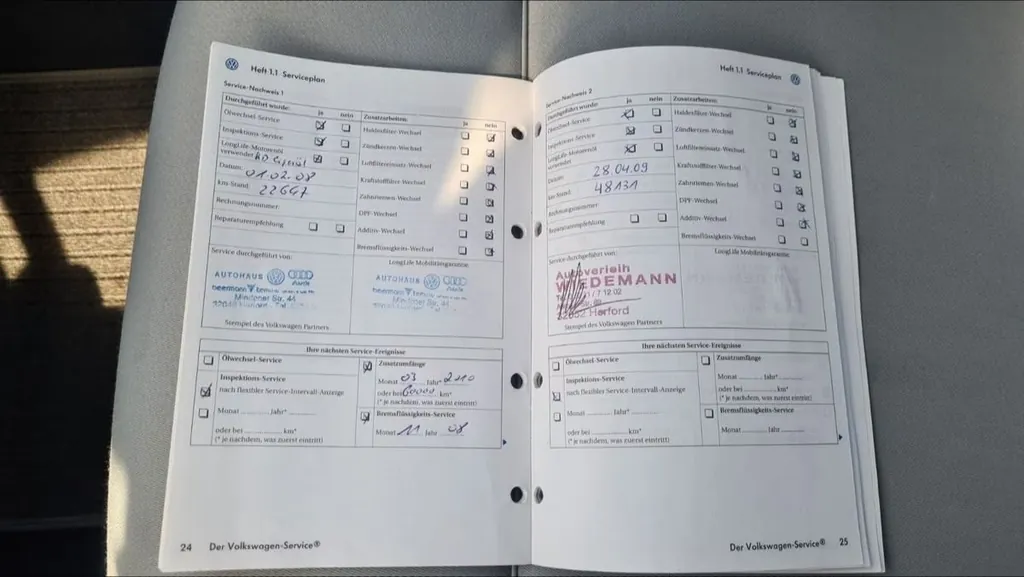 Heft 1.1 Serviceplan
Service-Nachweis 1
Durchgeführt wurde: ja nein
Ölwechsel-Service
Inspektions-Service
LongLife-Motorenöl verwendet
Datum: 01.02.08
km-Stand: 22647
Rechnungsnummer:
Reparaturempfehlung
Zusatzarbeiten: ja nein
Pollenfilter-Wechsel
Zündkerzen-Wechsel
Luftfiltereinsatz-Wechsel
Kraftstofffilter-Wechsel
Zahnriemen-Wechsel
DPF-Wechsel
Additiv-Wechsel
Bremsflüssigkeits-Wechsel
Service durchgeführt von:
LongLife Mobilitätsgarantie
AUTOHAUS Audi
Mindener Str. 44
AUTOHAUS Audi
Mindener Str. 44
Stempel des Volkswagen Partners
Ihre nächsten Service-Ereignisse
Ölwechsel-Service
Inspektions-Service
nach flexibler Service-Intervall-Anzeige
Monat Jahr*
oder bei km*
(* je nachdem, was zuerst eintritt)
Zusatzumfänge
Monat 03 Jahr* 2010
oder bei 60000 km*
(* je nachdem, was zuerst eintritt)
Bremsflüssigkeits-Service
Monat 11 Jahr 08
24 Der Volkswagen-Service®
Heft 1.1 Serviceplan
Service-Nachweis 2
Durchgeführt wurde: ja nein
Ölwechsel-Service
Inspektions-Service
LongLife-Motorenöl verwendet
Datum: 28.04.09
km-Stand: 48131
Rechnungsnummer:
Reparaturempfehlung
Zusatzarbeiten: ja nein
Pollenfilter-Wechsel
Zündkerzen-Wechsel
Luftfiltereinsatz-Wechsel
Kraftstofffilter-Wechsel
Zahnriemen-Wechsel
DPF-Wechsel
Additiv-Wechsel
Bremsflüssigkeits-Wechsel
Service durchgeführt von:
LongLife Mobilitätsgarantie
Autoverleih
WIEDEMANN
32052 Herford
Stempel des Volkswagen Partners
Ihre nächsten Service-Ereignisse
Ölwechsel-Service
Inspektions-Service
nach flexibler Service-Intervall-Anzeige
Monat Jahr*
oder bei km*
(* je nachdem, was zuerst eintritt)
Zusatzumfänge
Monat Jahr*
oder bei km*
(* je nachdem, was zuerst eintritt)
Bremsflüssigkeits-Service
Monat Jahr
Der Volkswagen-Service® 25